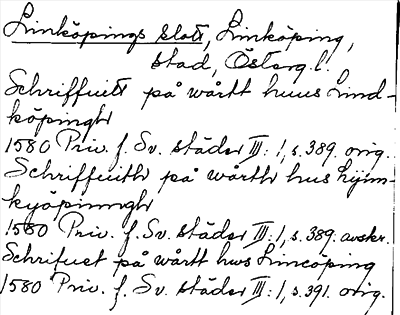 Linköpings slott, Linköping,
stad, Österg.l.
Schriffuitt på wårtt huus Lind-
köpingh
1580 Priv. f. Sv. städer III: 1, s. 389. orig.
Schriffuith på wårth hus Lyjm-
kyöpinngh
1580 Priv. f. Sv. städer III: 1, s. 389. avskr.
Schrifuet på wårtt hws Lincöping
1580 Priv. f. Sv. städer III: 1, s. 391. orig.